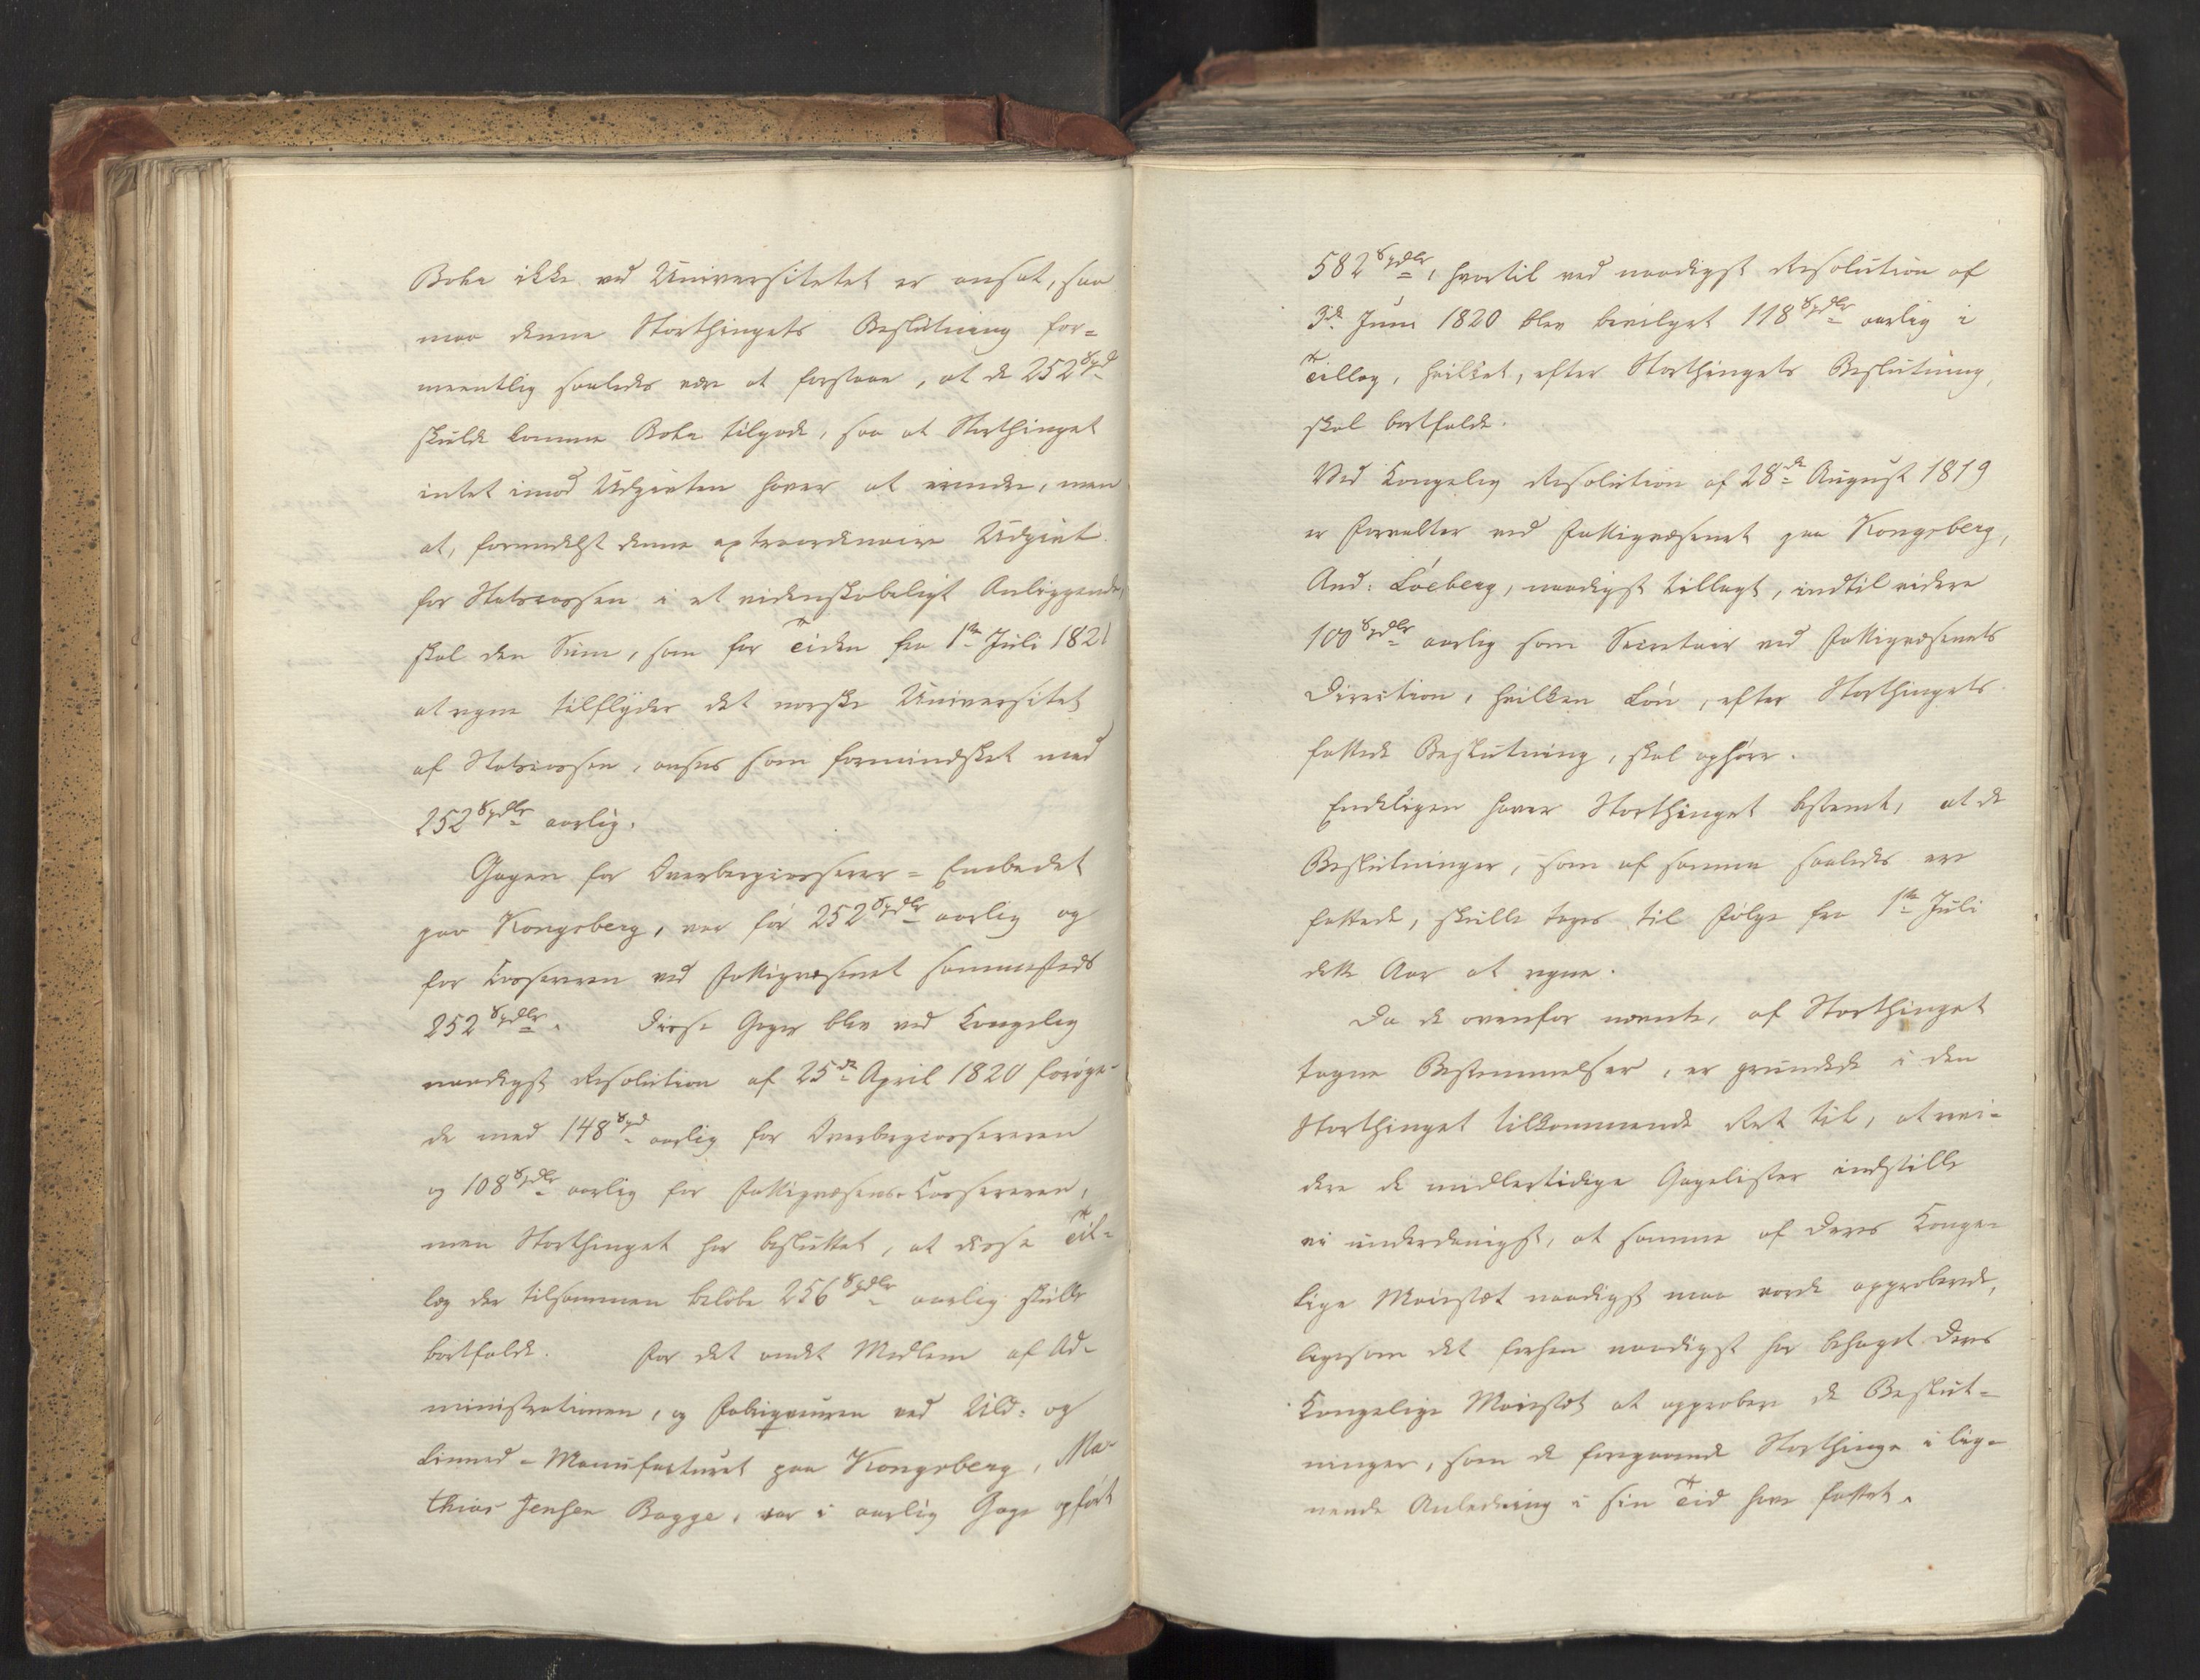 Boke ikke ved Universitetet er ansat, saa
maa denne Storthingets Beslutning for-
meentlig saaledes være at forstaae, at de 252 Spd
skulde komme Boke tilgode, saa at Storthinget
intet imod Udgiften haver at erindre, men
at, formedelst denne extraordinaire Udgivt
for Statscassen i et videnskabeligt Anliggende,
skal den Sum, som for Tiden fra 1ste Juli 1821
at regne tilflyder det norske Universitet
af Statscassen, ansees som formindsket med
252 Spdlr aarlig.
Gagen for Overbergcasserer-Embedet
paa Kongsberg, var før 252 Spdlr aarlig og
for Cassereren ved Fattigvæsenet sammesteds
252 Spdlr. Disse Gager blev ved Kongelig
naadigst Resolution af 25de April 1820 forøge-
de med 148 Spd aarlig for Overbergcassereren
og 108 Spdlr aarlig for Fattigvæsens-Cassereren,
men Storthinget har besluttet, at disse Til-
læg der tilsammen beløbe 256 Spdlr aarlig skulle
bortfalde. For det andet Medlem af Ad-
ministrationen, og Fabriqueuren ved Uld- og
Linned-Manufacturet paa Kongsberg, Ma-
thias Jensen Bagge, var i aarlig Gage opført
582 Spdlr, hvortil ved naadigst Resolution af
3de Juni 1820 blev bevilget 118 Spdlr aarlig i
Tillæg, hvilket, efter Storthingets Beslutning,
skal bortfalde.
Ved Kongelig Resolution af 28de August 1819
er Forvalter ved Fattigvæsenet paa Kongsberg,
And: Løeberg, naadigst tillagt, indtil videre
100 Spdlr aarlig som Secretair ved Fattigvæsenets
Direction, hvilken Løn, efter Storthingets
fattede Beslutning, skal ophøre.
Endeligen haver Storthinget bestemt, at de
Beslutninger, som af samme saaledes ere
fattede, skulle tages til Følge fra 1ste Juli
dette Aar at regne.
Da de ovenfor nævnte, af Storthinget
tagne Bestemmelser, er grundede i den
Storthinget tilkommende Ret til, at revi-
dere de midlertidige Gagelister indstille
vi underdanigst, at samme af Deres Konge-
lige Majestæt naadigst maa vorde approberede,
ligesom det forhen naadigst har behaget Deres
Kongelige Majestæt at approbere de Beslut-
ninger, som de foregaaende Storthinge i lig-
nende Anledning i sin Tid have fattet.